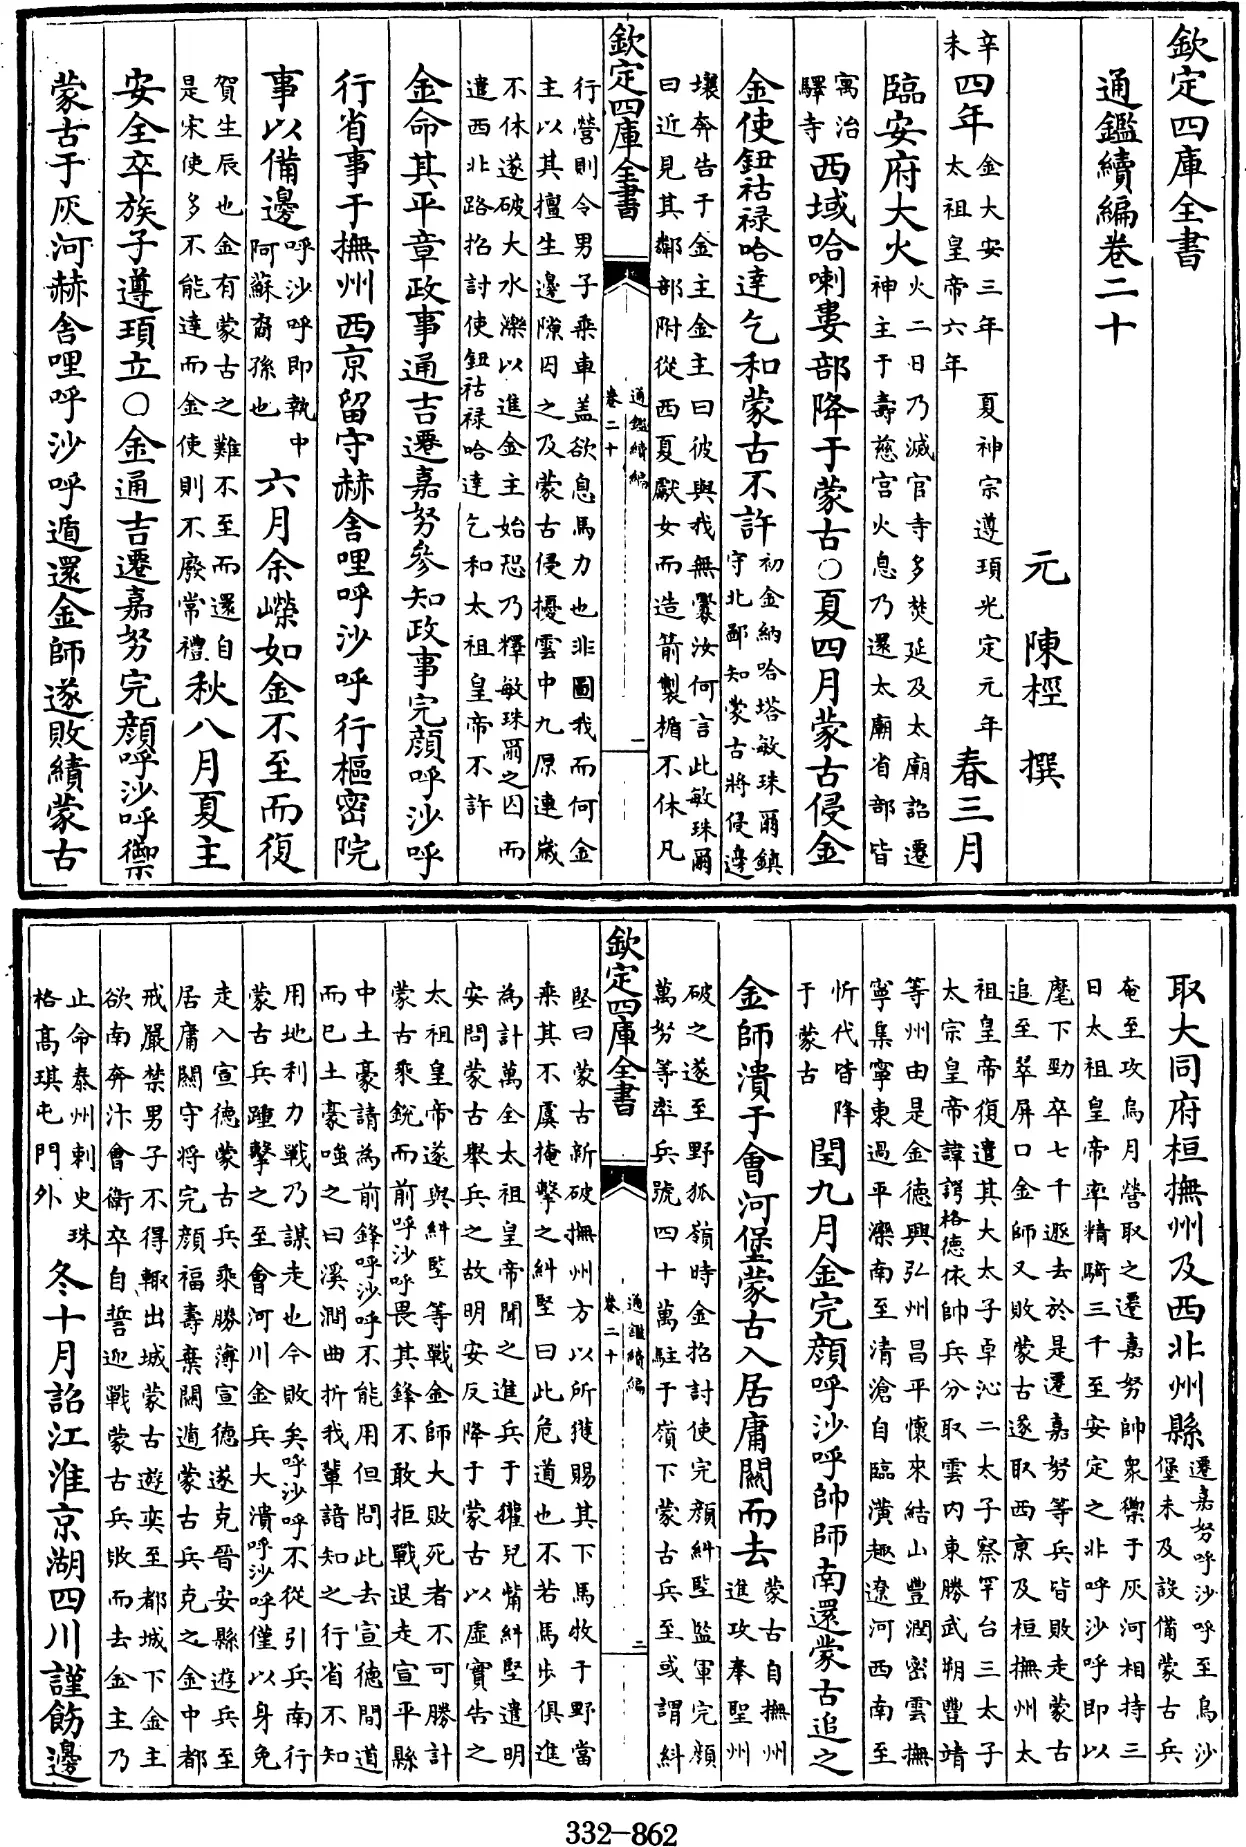 欽定四庫全書
通鑑續編卷二十
元 陳桱 撰
辛未四年金大安三年 夏神宗遵頊光定元年太祖皇帝六年春三月
臨安府大火火二日乃滅官寺多焚延及太廟詔遷神主于壽慈宮火息乃還太廟省部皆
寓治驛寺西域哈喇婁部降于蒙古○夏四月蒙古侵金
金使鈕祜禄哈達乞和蒙古不許初金納哈塔敏珠爾鎮守北鄙知蒙古將侵邊
壤奔告于金主金主曰彼與我無釁汝何言此敏珠爾曰近見其鄰部附從西夏獻女而造箭製楯不休凡
欽定四庫全書
通鑑續編
卷二十
一
行營則令男子乘車蓋欲息馬力也非圖我而何金主以其擅生邊隙囚之及蒙古侵擾雲中九原連歲
不休遂破大水濼以進金主始恐乃釋敏珠爾之囚而遣西北路招討使鈕祜禄哈達乞和太祖皇帝不許
金命其平章政事通吉遷嘉努參知政事完顔呼沙呼
行省事于撫州西京留守赫舍哩呼沙呼行樞密院
事以備邊呼沙呼即執中阿蘇裔孫也六月余嶸如金不至而復
賀生辰也金有蒙古之難不至而還自是宋使多不能達而金使則不廢常禮秋八月夏主
安全卒族子遵頊立○金通吉遷嘉努完顔呼沙呼禦
蒙古于灰河赫舍哩呼沙呼遁還金師遂敗績蒙古
取大同府桓撫州及西北州縣遷嘉努呼沙呼至烏沙堡未及設備蒙古兵
奄至攻烏月營取之遷嘉努帥衆禦于灰河相持三日太祖皇帝率精騎三千至安定之北呼沙呼即以
麾下勁卒七千遁去於是遷嘉努等兵皆敗走蒙古追至翠屏口金師又敗蒙古遂取西京及桓撫州太
祖皇帝復遣其大太子卓沁二太子察罕台三太子太宗皇帝諱諤格德依帥兵分取雲内東勝武朔豐靖
等州由是金德興弘州昌平懷來縉山豐潤密雲撫寧集寧東過平灤南至清滄自臨潢趣遼河西南至
忻代皆降于蒙古閏九月金完顔呼沙呼帥師南還蒙古追之
金師潰于會河堡蒙古入居庸關而去蒙古自撫州進攻奉聖州
破之遂至野狐嶺時金招討使完顔糾堅監軍完顔萬努等率兵號四十萬駐于嶺下蒙古兵至或謂糾
欽定四庫全書
通鑑續編
卷二十
二
堅曰蒙古新破撫州方以所獲賜其下馬牧于野當乘其不虞掩擊之糾堅曰此危道也不若馬步俱進
為計萬全太祖皇帝聞之進兵于獾兒觜糾堅遣明安問蒙古舉兵之故明安反降于蒙古以虛實告之
太祖皇帝遂與糾堅等戰金師大敗死者不可勝計蒙古乘銳而前呼沙呼畏其鋒不敢拒戰退走宣平縣
中土豪請為前鋒呼沙呼不能用但問此去宣德間道而已土豪嗤之曰溪澗曲折我輩諳知之行省不知
用地利力戰乃謀走也今敗矣呼沙呼不從引兵南行蒙古兵踵擊之至會河川金兵大潰呼沙呼僅以身免
走入宣德蒙古兵乘勝薄宣德遂克晉安縣遊兵至居庸關守將完顔福壽棄關遁蒙古兵克之金中都
戒嚴禁男子不得輒出城蒙古遊奕至都城下金主欲南奔汴會衛卒自誓迎戰蒙古兵敗而去金主乃
止命泰州刺史珠格高琪屯門外冬十月詔江淮京湖四川謹飭邊
332-862